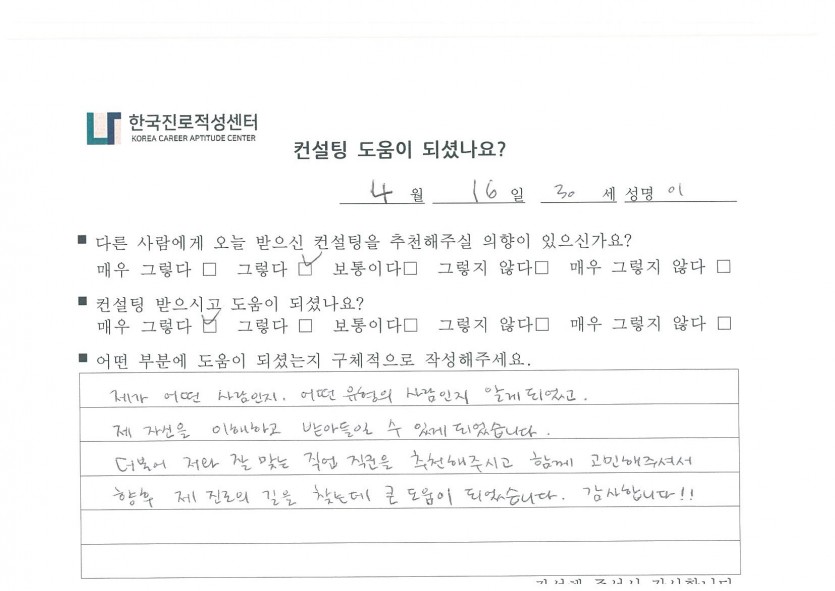 한국진로적성센터
KOREA CAREER APTITUDE CENTER
컨설팅 도움이 되셨나요?
4 월 16 일 30 세 성명 이
■ 다른 사람에게 오늘 받으신 컨설팅을 추천해주실 의향이 있으신가요?
매우 그렇다 □ 그렇다 ☑ 보통이다□ 그렇지 않다□ 매우 그렇지 않다 □
■ 컨설팅 받으시고 도움이 되셨나요?
매우 그렇다 ☑ 그렇다 □ 보통이다□ 그렇지 않다□ 매우 그렇지 않다 □
■ 어떤 부분에 도움이 되셨는지 구체적으로 작성해주세요.
제가 어떤 사람인지. 어떤 유형의 사람인지 알게 되었고.
제 자신을 이해하고 받아들일 수 있게 되었습니다.
더불어 저와 잘 맞는 직업 직군을 추천해주시고 함께 고민해주셔서
향후 제 진로의 길을 찾는데 큰 도움이 되었습니다. 감사합니다!!